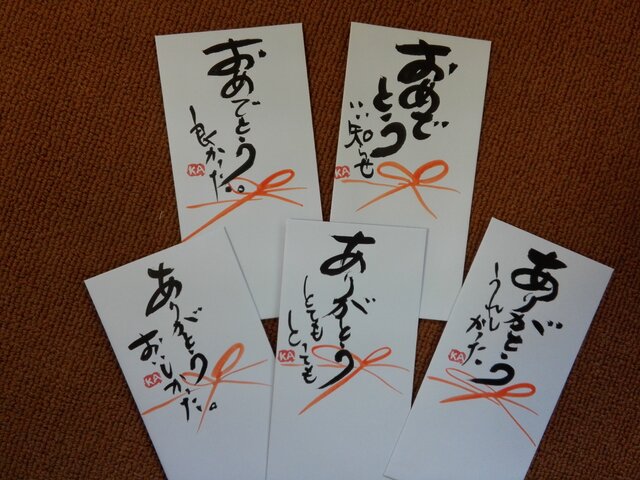 おめでとう
良かった。
KA
おめで
とう
いい知らせ
KA
ありがとう
おいしかった。
KA
ありがとう
とても
とっても
KA
ありがとう
うれし
かった
KA